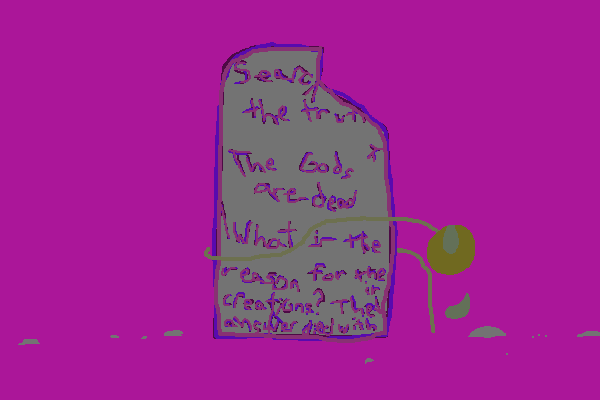 Searc
the trut
The Gods
are dead
What is the
reason for the
creations? The
answer died with